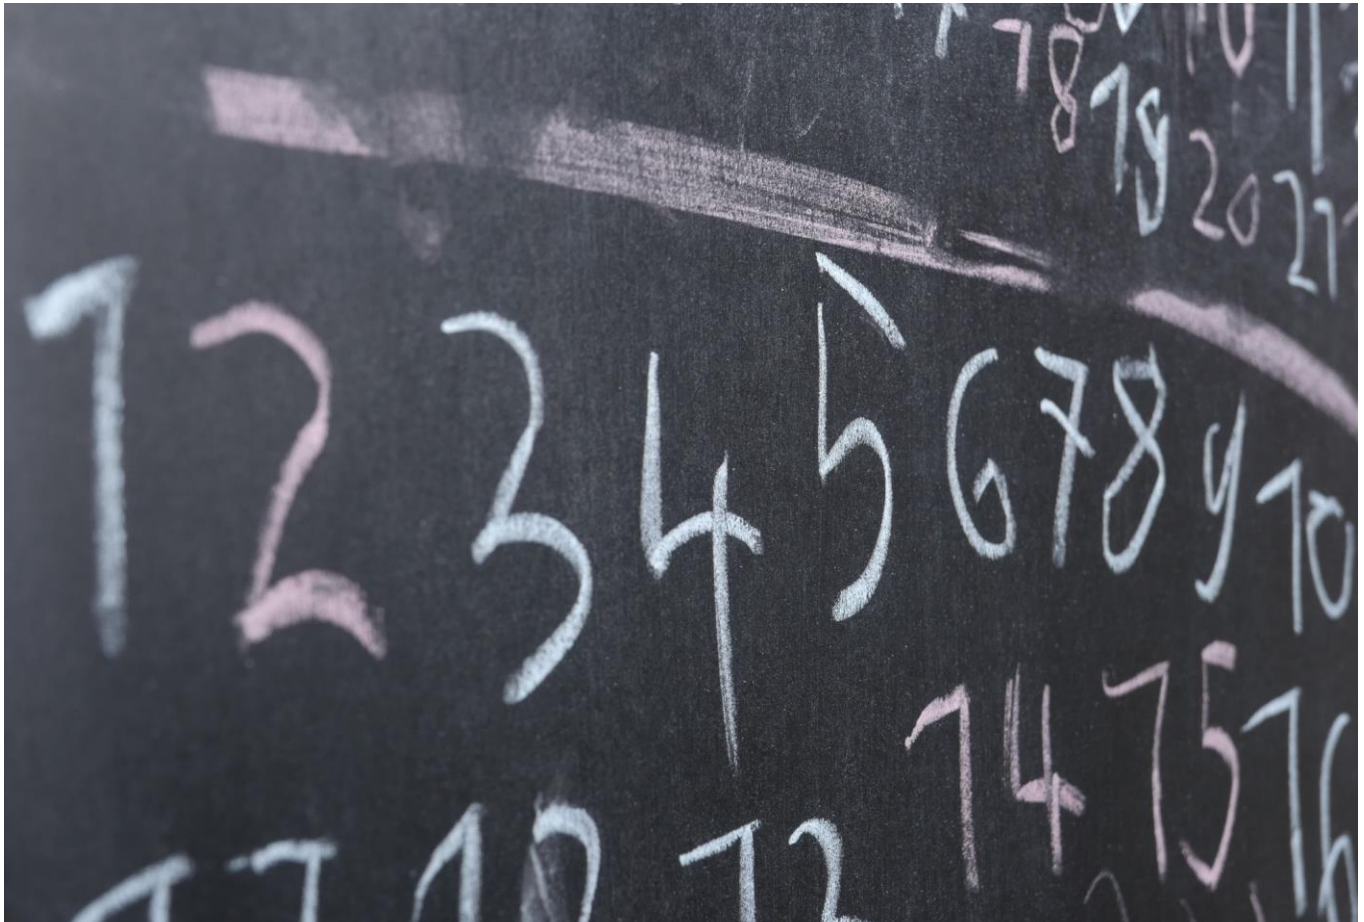 18
19 20 21
1 2 3 4 5 6 7 8 9 10
14 15 16
11 12 13